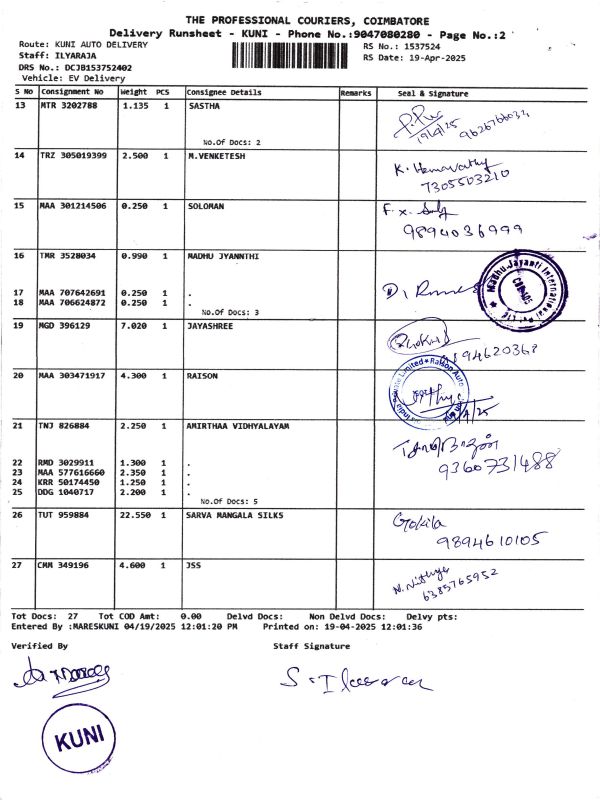 THE PROFESSIONAL COURIERS, COIMBATORE
Delivery Runsheet - KUNI - Phone No.:9047080280 - Page No.:2
Route: KUNI AUTO DELIVERY
RS No.: 1537524
Staff: ILYARAJA
RS Date: 19-Apr-2025
DRS No.: DCJB153752402
Vehicle: EV Delivery
S No Consignment No Weight PCS Consignee Details Remarks Seal & Signature
13 MTR 3202788 1.135 1 SASTHA
19/4/25
No.Of Docs: 2
14 TRZ 305019399 2.500 1 M.VENKETESH
K. Hemavathy
7305503210
15 MAA 301214506 0.250 1 SOLOMAN
9894036999
16 TMR 3528034 0.990 1 MADHU JYANNTHI
Madhu Jayanti International Pvt Ltd
17 MAA 707642691 0.250 1 .
18 MAA 706624872 0.250 1 .
No.Of Docs: 3
19 MGD 396129 7.020 1 JAYASHREE
20 MAA 303471917 4.300 1 RAISON
21 TNJ 826884 2.250 1 AMIRTHAA VIDHYALAYAM
9360731488
22 RMD 3029911 1.300 1 .
23 MAA 577616660 2.350 1 .
24 KRR 50174450 1.250 1 .
25 DDG 1040717 2.200 1 .
No.Of Docs: 5
26 TUT 959884 22.550 1 SARVA MANGALA SILKS
Gokila
9894610105
27 CMM 349196 4.600 1 JSS
N. Nithya
6385765952
Tot Docs: 27 Tot COD Amt: 0.00 Delvd Docs: Non Delvd Docs: Delvy pts:
Entered By :MARESKUNI 04/19/2025 12:01:20 PM Printed on: 19-04-2025 12:01:36
Verified By Staff Signature
KUNI